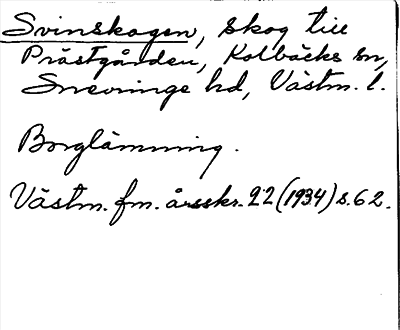 Svinskogen, skog till
Prästgården, Kolbäcks sn,
Snevringe hd, Västm. l.
Borglämning.
Västm. fm. årsskr. 22 (1934) s. 62.